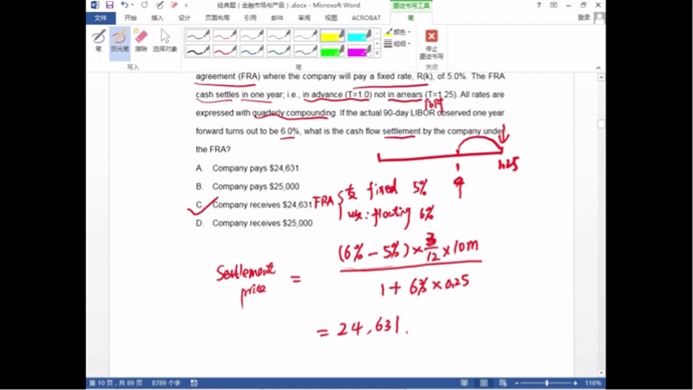 经典题(金融市场与产品).docx - Microsoft Word
墨迹书写工具
文件 开始 插入 页面布局 引用 邮件 审阅 视图 ACROBAT 笔 登录
笔 荧光笔 擦除 选择对象
颜色
粗细
停止
墨迹书写
写入 笔 关闭
agreement (FRA) where the company will pay a fixed rate, R(k), of 5.0%. The FRA
cash settles in one year; i.e., in advance (T=1.0) not in arrears (T=1.25). All rates are
expressed with quarterly compounding. If the actual 90-day LIBOR observed one year
forward turns out to be 6.0%, what is the cash flow settlement by the company under
the FRA?
A. Company pays $24,631
B. Company pays $25,000
C. Company receives $24,631
D. Company receives $25,000
1 1.25
FRA
支 fixed 5%
收: floating 6%
Settlement price = (6% - 5%) × 3/12 × 10m
1 + 6% × 0.25
= 24,631.
第 10 页,共 89 页 8789 个字 116%